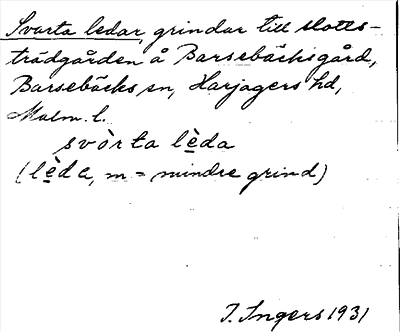 Svarta ledar, grindar till slotts-
trädgården å Barsebäcksgård,
Barsebäcks sn, Harjagers hd,
Malm. l.
svòrta lèda
(lèda, m = mindre grind)
I. Ingers 1931